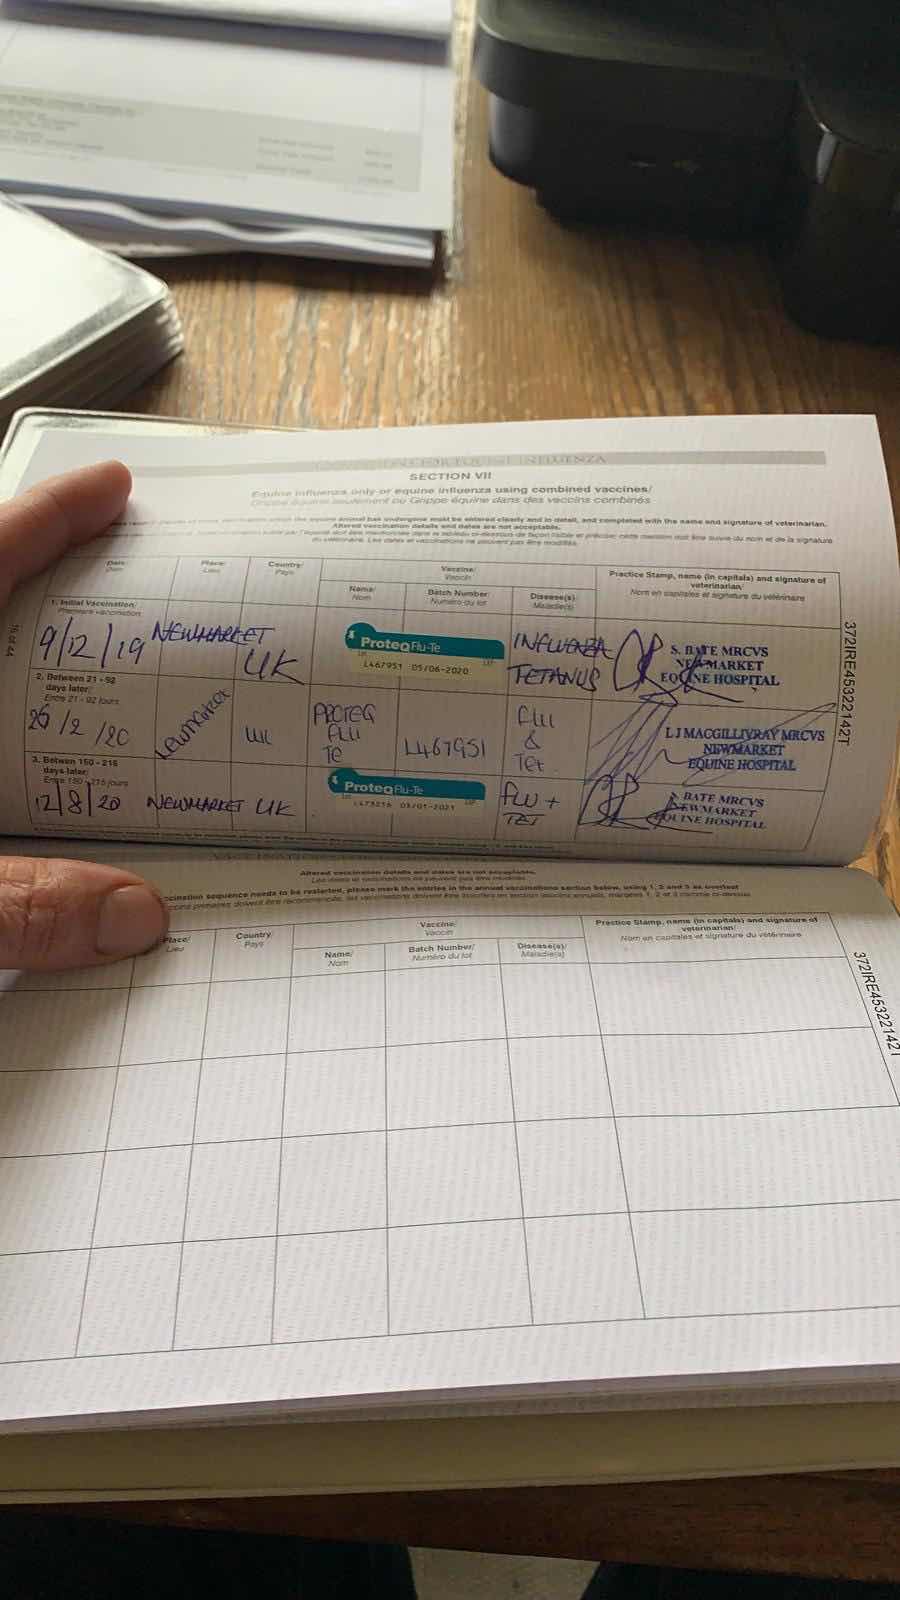 SECTION VII
Equine influenza only or equine influenza using combined vaccines/
Grippe équine seulement ou Grippe équine dans des vaccins combinés
which the equine animal has undergone must be entered clearly and in detail, and completed with the name and signature of veterinarian.
Altered vaccination details and dates are not acceptable.
doit être mentionnée dans le tableau ci-dessous de façon lisible et précise; cette mention doit être suivie du nom et de la signature
du vétérinaire. Les dates et vaccinations ne peuvent pas être modifiés.
Date/
Place/
Lieu
Country/
Pays
Vaccine/
Vaccin
Name/
Nom
Batch Number/
Numéro du lot
Disease(s)/
Maladie(s)
Practice Stamp, name (in capitals) and signature of
veterinarian/
Nom en capitales et signature du vétérinaire
1. Initial Vaccination/
Première vaccination
9/12/19 NEWMARKET UK
ProteqFlu-Te
L467951 05/06-2020
INFLUENZA
TETANUS
S. BATE MRCVS
NEWMARKET
EQUINE HOSPITAL
2. Between 21 - 92
days later/
Entre 21 - 92 jours
/2/20 Newmarket UK
PROTEQ
FLU
TE
L467951
FLU
&
Tet
L J MACGILLIVRAY MRCVS
NEWMARKET
EQUINE HOSPITAL
3. Betwen 150 - 215
days later/
Entre 150 - 215 jours
12/8/20 NEWMARKET UK
ProteqFlu-Te
L473216 03/01-2021
FLU +
TET
BATE MRCVS
NEWMARKET
EQUINE HOSPITAL
15 of 44
372IRE45322142T
Altered vaccination details and dates are not acceptable.
Les dates et vaccinations ne peuvent pas être modifiés.
sequence needs to be restarted, please mark the entries in the annual vaccinations section below, using 1, 2 and 3 as overleaf
Place/
Lieu
Country/
Pays
Vaccine/
Vaccin
Name/
Nom
Batch Number/
Numéro du lot
Disease(s)/
Maladie(s)
Practice Stamp, name (in capitals) and signature of
veterinarian/
Nom en capitales et signature du vétérinaire
372IRE45322142T